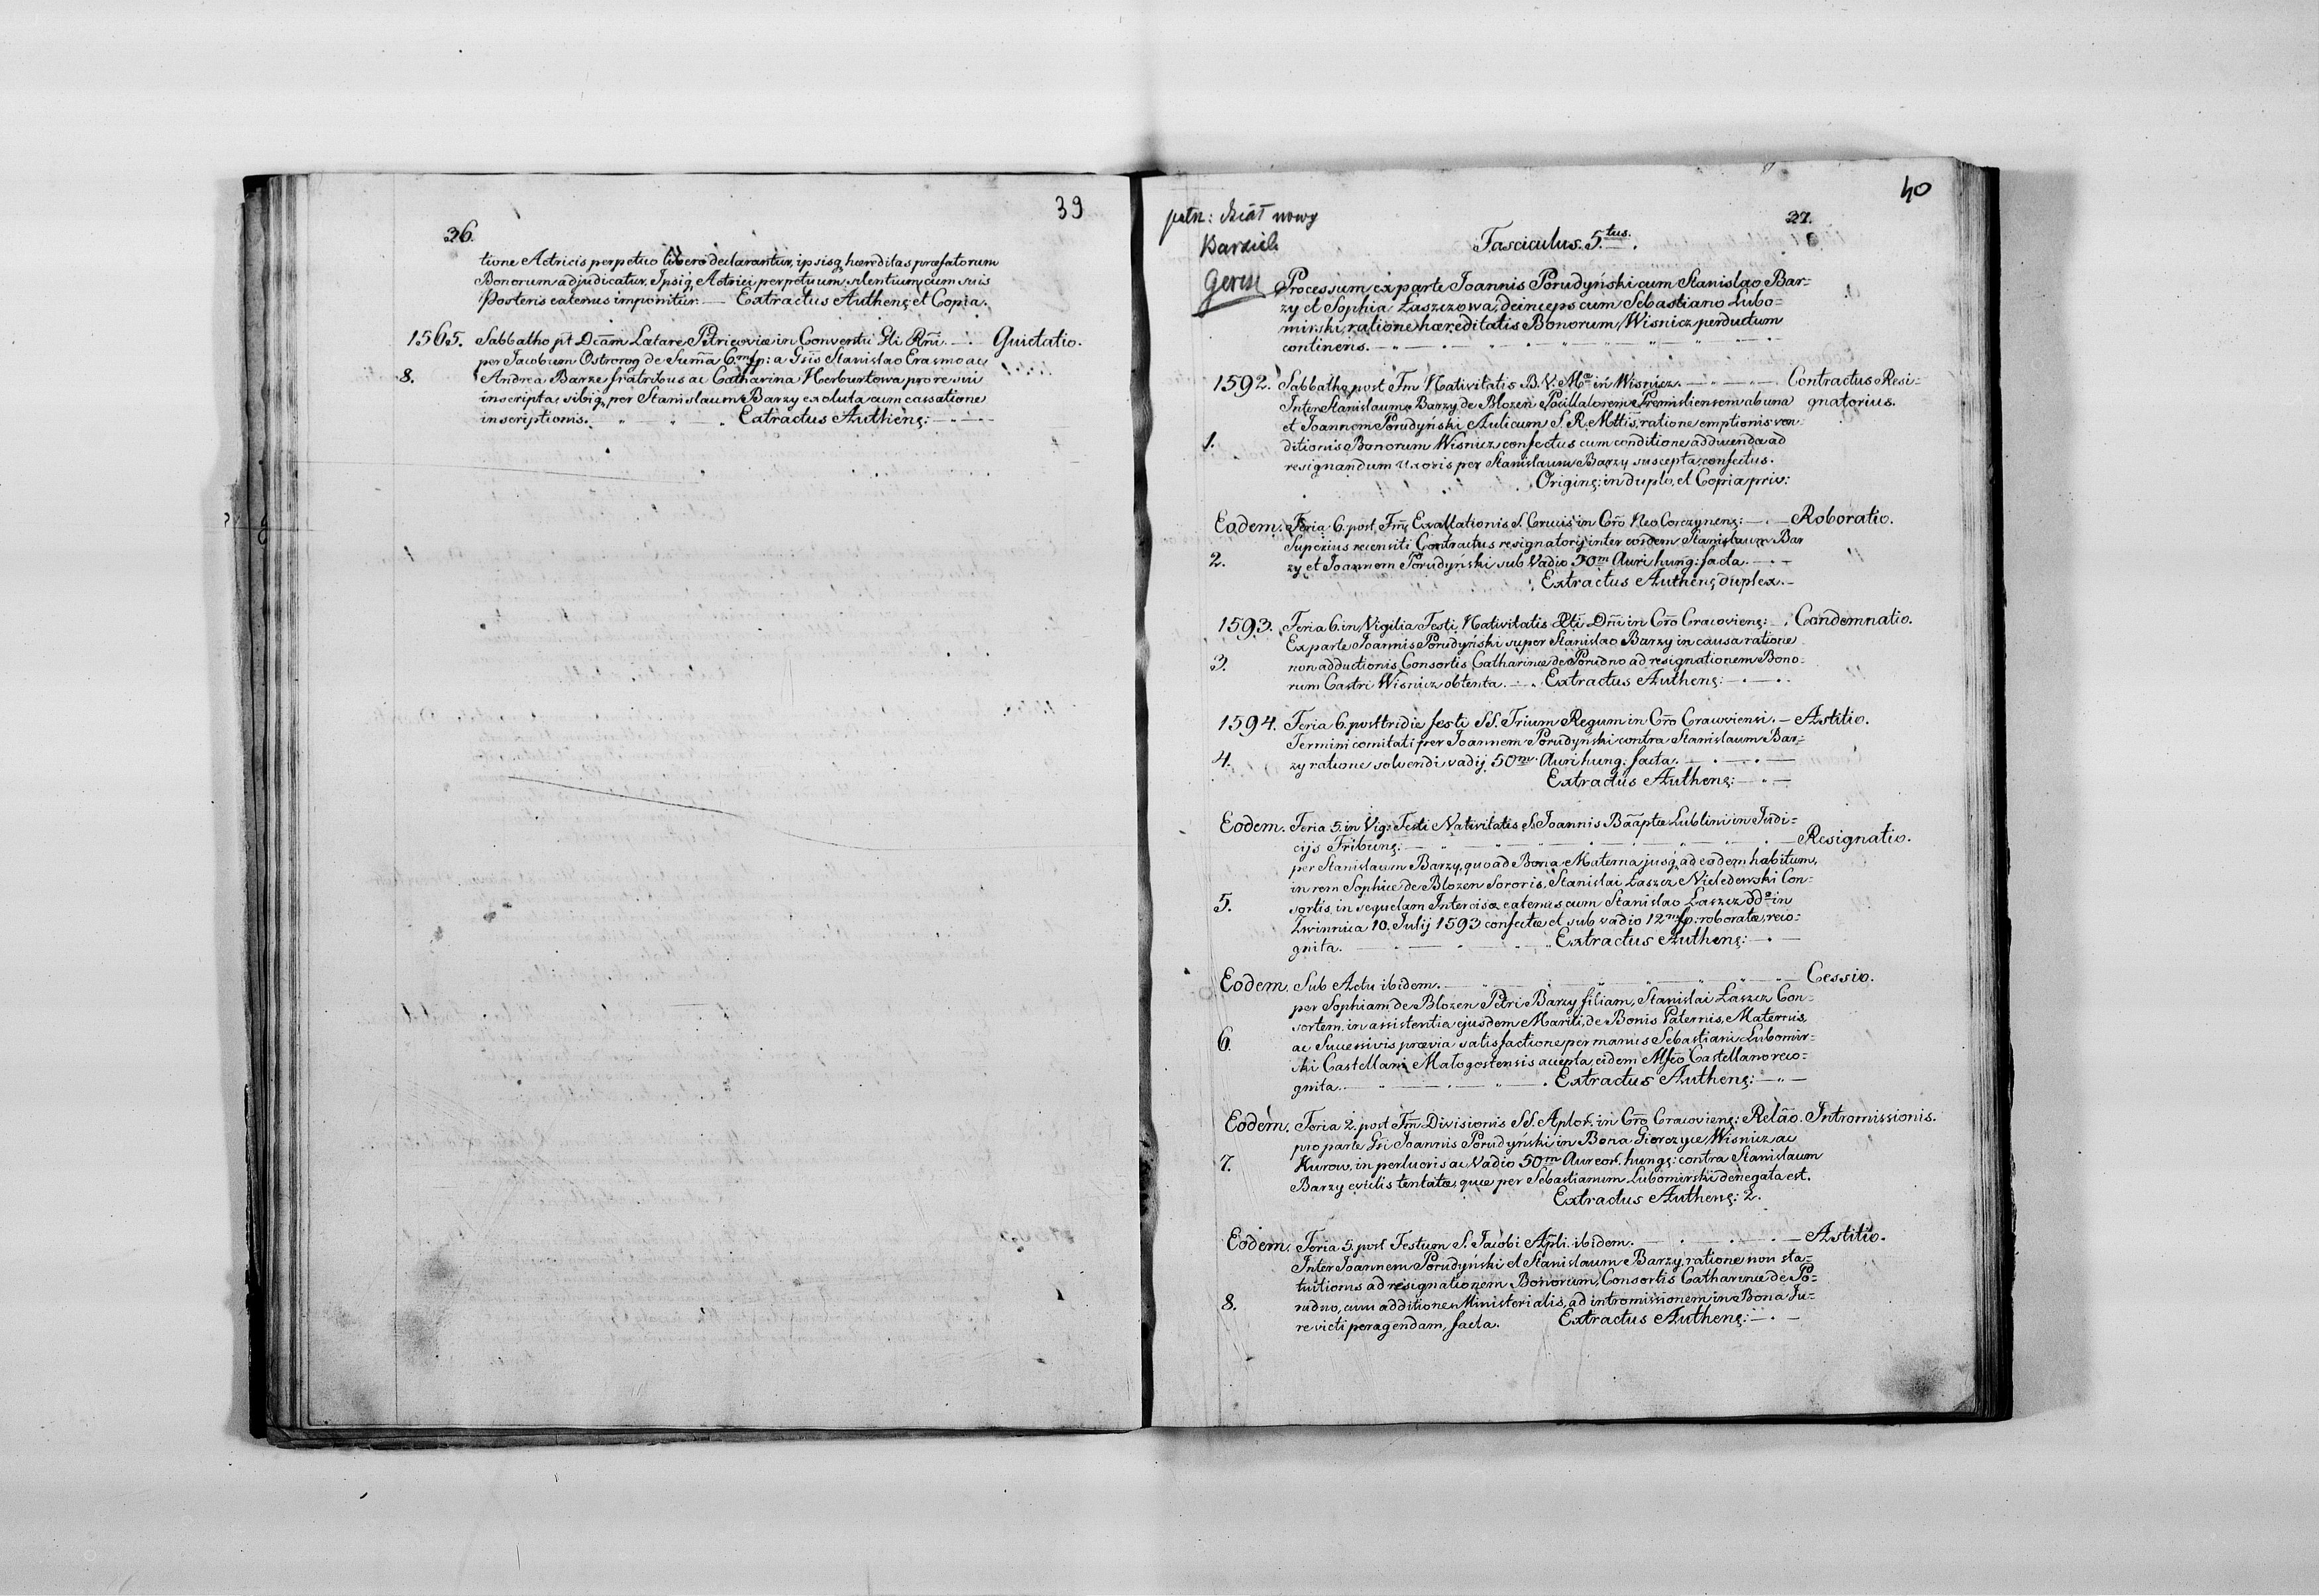 39
36.
tione Actricis perpetuo libero declarantur, ipsisq hæreditas præfatorum
Bonorum adjudicatur, Ipsiq Actrici perpetuum silentium cum suis
Posteris eatenus imponitur. — Extractus Authenς et Copia.
1565. Sabbatho pt Dcãm Lætare Petricoviæ in Conventu Gli Rñi. — Quietatio.
per Jacobum Ostrorog de Sum̃a 6.m fp: a Gsis Stanislao Erasmo ac
8. Andrea Barze fratribus ac Catharina Herburtowa pro re sui
inscripta, sibiq per Stanislaum Barzy exoluta cum cassatione
inscriptionis. Extractus Authenς: —
40
27.
nowy
Fasciculus. 5.tus.
Processum ex parte Joannis Porudyński cum Stanislao Bar=
zy et Sophia Łaszczowa, deinceps cum Sebastiano Lubo=
mirski, ratione hæreditatis Bonorum Wisnicz perductum
continens.
1592. Sabbatho post Fm Nativitatis B. V. Mæ in Wisnicz. — Contractus Resi=
Inter Stanislaum Barzy de Blozen Pocillatorem Premisliensem ab una gnatorius.
et Joannem Porudyński Aulicum S. R. Mttis, ratione emptionis ven
1. ditionis Bonorum Wisnicz confectus cum conditione adducenda ad
resignandum Uxoris per Stanislaum Barzy suscepta, confectus.
Originς: in duplo, et Copia priv:
Eodem. Feria 6. post Fm̃ Exaltationis S. Crucis in Cr̃o Neo Corczynenς: — Roboratio.
Superius recensiti Contractus resignatorij inter eosdem Stanislaum Bar
2. zy et Joannem Porudyński sub Vadio 50m Auri hung: facta. —
Extractus Authenς duplex. —
1593. Feria 6. in Vigilia Festi Nativitatis Xti Dñi in Cr̃o Cracovienς: — Condemnatio.
Ex parte Joannis Porudyński super Stanislao Barzy in causa ratione
3. non adductionis Consortis Catharinæ de Porudno ad resignationem Bono=
rum Castri Wisnicz obtenta. — Extractus Authenς: —
1594. Feria 6. posttridie festi SS. Trium Regum in Cr̃o Cracoviensi. — Astitio.
Termini comitati per Joannem Porudyński contra Stanislaum Bar=
4. zy ratione solvendi vadij 50m Auri hung: facta. —
Extractus Authenς: —
Eodem. Feria 5. in Vig: Festi Nativitatis S. Joannis Bãaptæ Lublini in Judi=
cijs Tribunς: — Resignatio.
per Stanislaum Barzy, quo ad Bona Materna jusq ad eadem habitum,
in rem Sophiæ de Blozen Sororis, Stanislai Łaszcz Nieledewski Con=
5. sortis, in sequelam Intercisæ eatenus cum Stanislao Łaszcz dda in
Zwinnica 10. Julij 1593 confectæ et sub vadio 12m fp: roboratæ, reco=
gnita. Extractus Authenς: —
Eodem. Sub Actu ibidem. — Cessio.
per Sophiam de Blozen Petri Barzy filiam, Stanislai Łaszcz Con=
sortem, in assistentia ejusdem Mariti, de Bonis Paternis, Maternis,
6. ac Sucessivis prævia satisfactione per manus Sebastiani Lubomir=
ski Castellani Małogostensis accepta, eidem Mfco Castellano reco=
gnita. — Extractus Authenς: —
Eodem. Feria 2. post Fm̃ Divisionis SS. Aplor. in Cr̃o Cracovienς: Relão. Intromissionis.
pro parte Gsi Joannis Porudyński in Bona Gierczyce Wisnicz ac
7. Kurow, in perlucris ac Vadio 50m Aureor. hungς: contra Stanislaum
Barzy evictis tentatæ, quæ per Sebastianum Lubomirski denegata est.
Extractus Authenς: 2.
Eodem. Feria 5. post Festum S. Jacobi Apli. ibidem. — Astitio.
Inter Joannem Porudyński et Stanislaum Barzy, ratione non sta=
tuitionis ad resignationem Bonorum, Consortis Catharinæ de Po=
8. rudno, cum additione Ministerialis, ad intromissionem in Bona Ju=
re victi peragendam, facta. Extractus Authenς: —